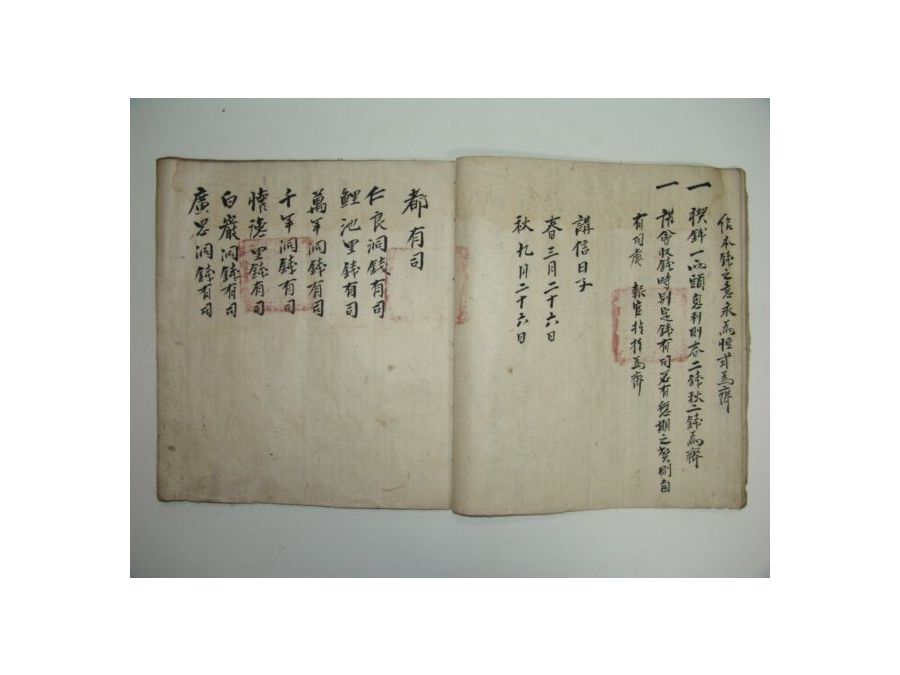 信本錢之意永爲恒式爲齊
一 稧錢一兩頭息利則春二錢秋二錢爲齊
一 講會收錢時別定錢有司若有愆期之弊則自
有司處 報官推捉爲齊
講信日子
春三月二十六日
秋九月二十六日
都有司
仁良洞錢有司
鯉池里錢有司
萬年洞錢有司
千年洞錢有司
懷德里錢有司
白巖洞錢有司
廣思洞錢有司